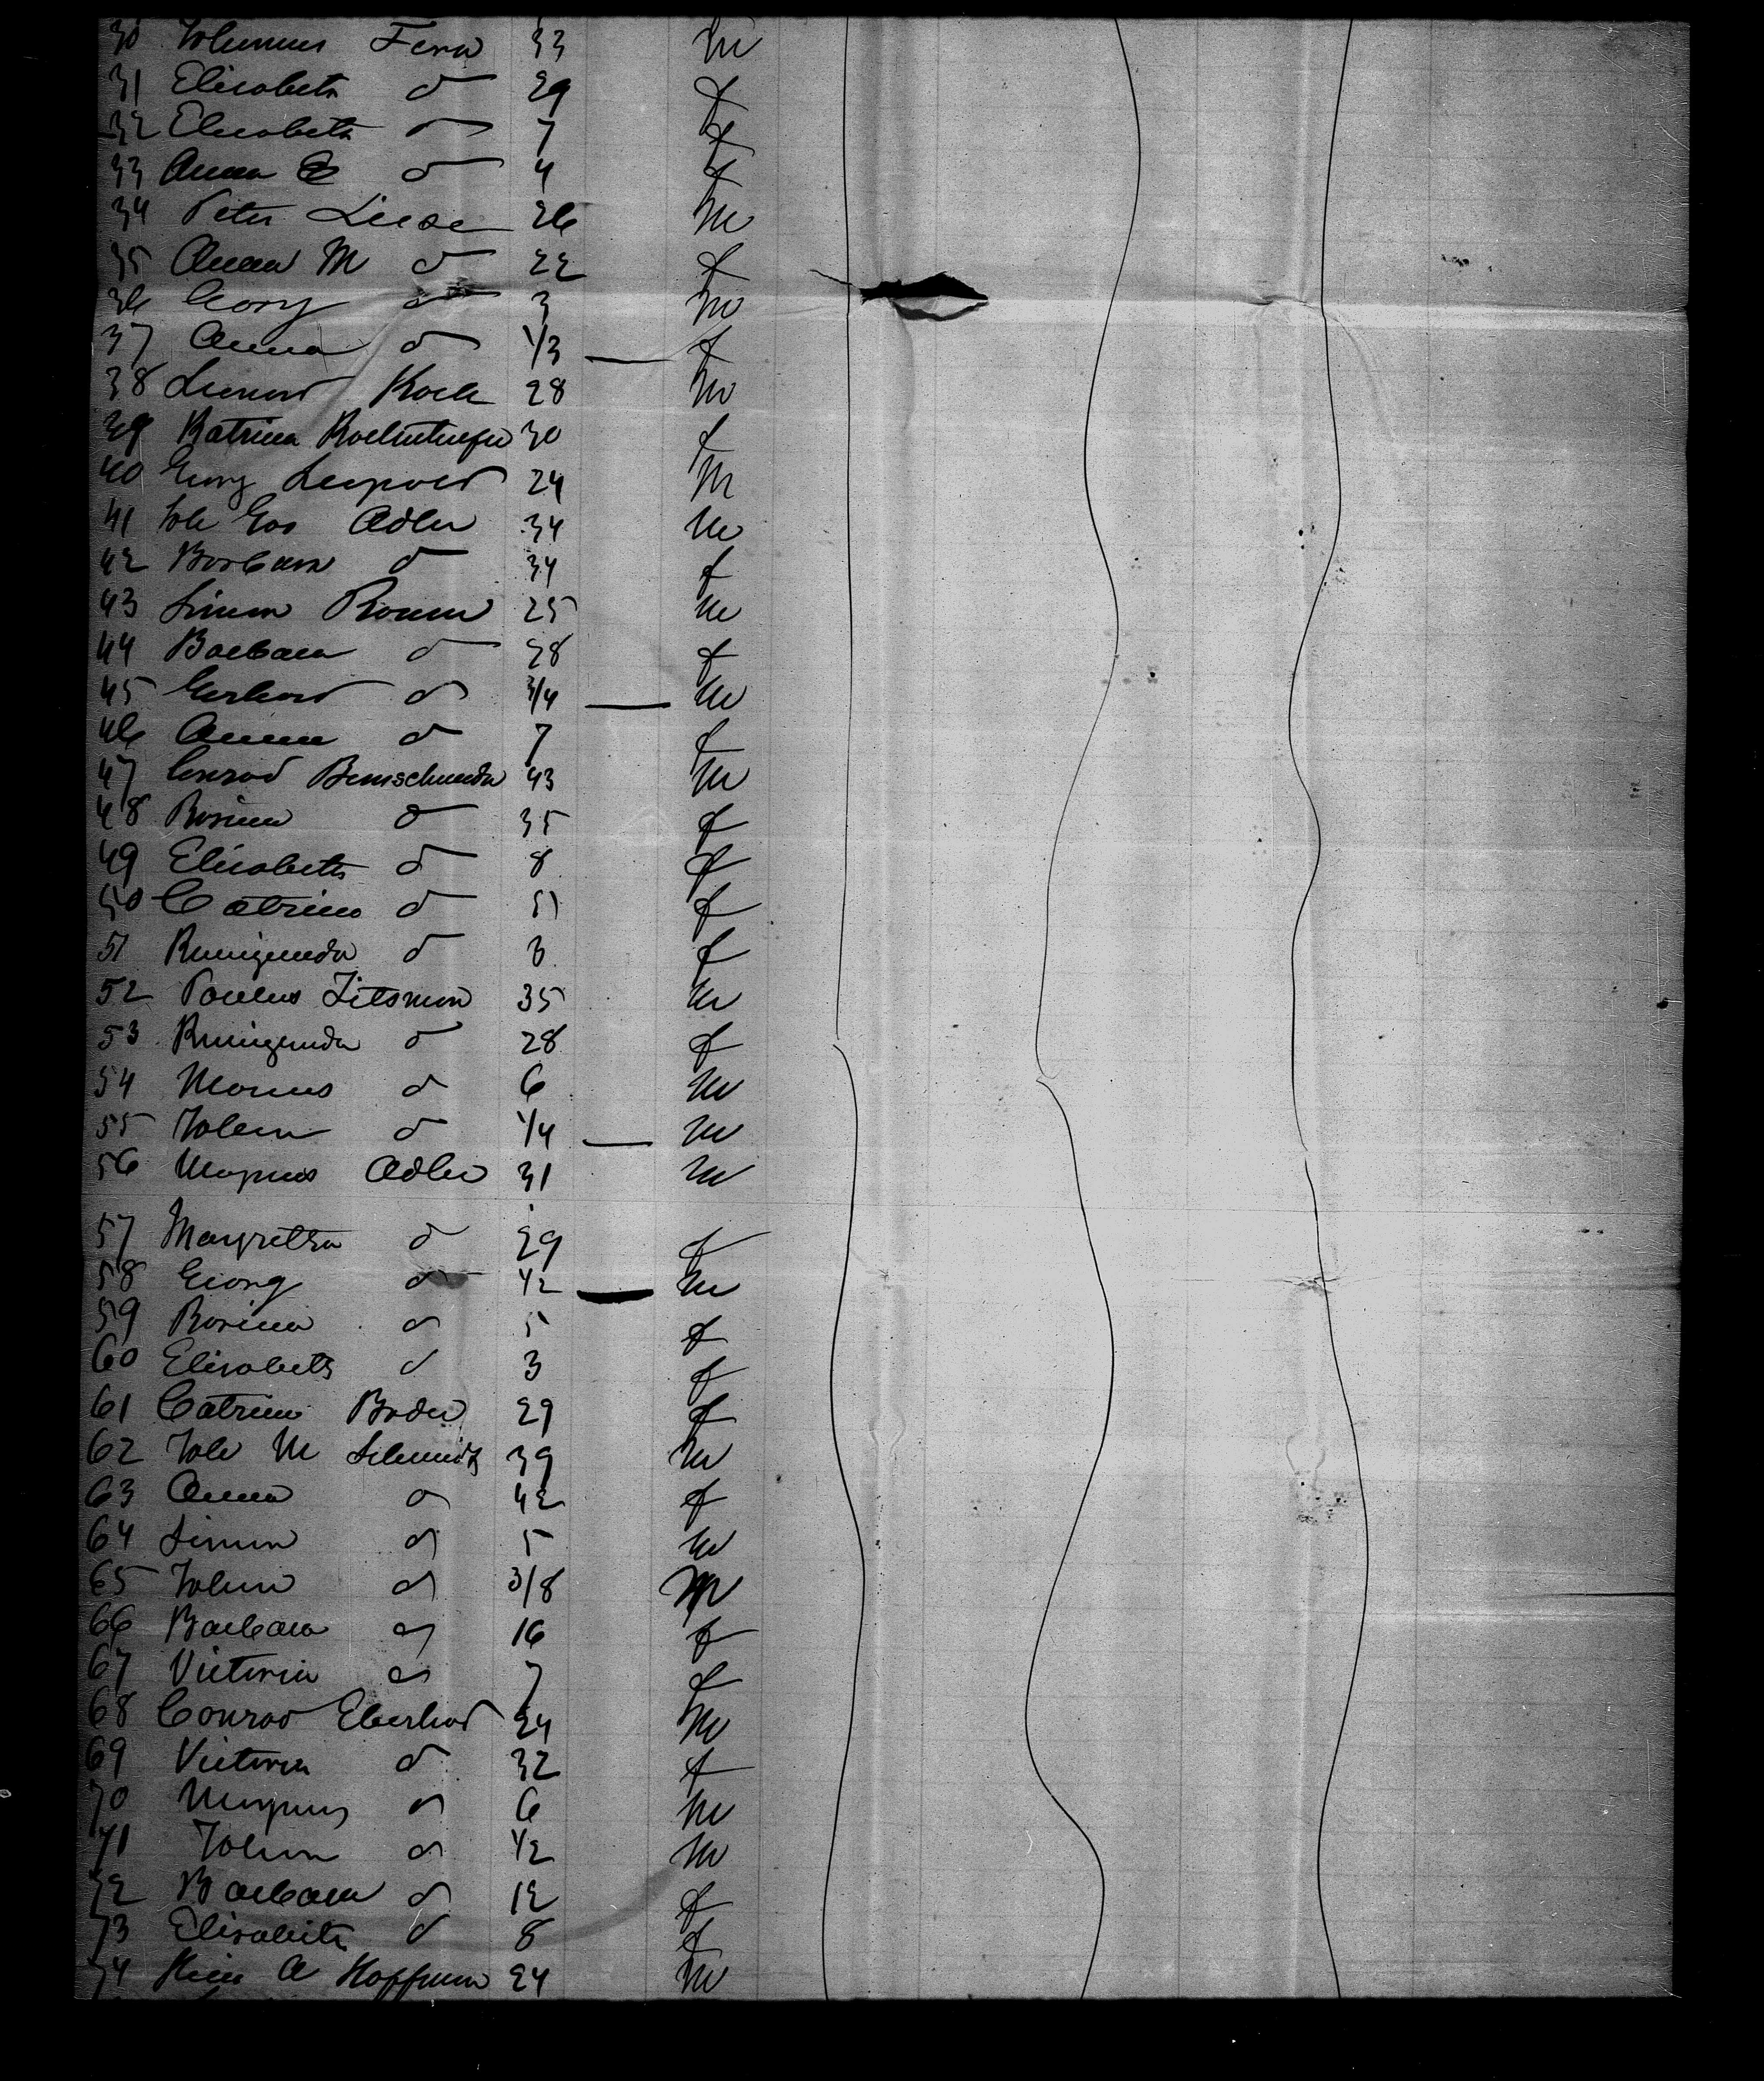 30 Johannes Fenn 33 m
31 Elisabeth d 29 f
32 Elisabeth d 7 f
33 Anna E d 4 f
34 Peter Liese 26 m
35 Anna M d 22 f
36 Georg d 3 m
37 Anna d 1/3 f
38 Lienard Koch 28 m
39 Katrina 30 f
40 Georg Leopold 24 m
41 Joh Geo Adler 34 m
42 Barbara d 34 f
43 Simon 25 m
44 Barbara d 28 f
45 Gerhard d 3/4 m
46 Anna d 7 f
47 Conrad 43 m
48 Rosina d 35 f
49 Elisabeth d 8 f
50 Catrina d 5 f
51 Kunigunda d 3 f
52 Paulus Titsman 35 m
53 Kunigunda d 28 f
54 d 6 m
55 Johann d 1/4 m
56 Magnus Adler 31 m
57 Margretha d 29 f
58 Georg d 1/2 m
59 Rosina d 5 f
60 Elisabeth d 3 f
61 Catrina Bader 29 f
62 Joh M Schmidt 39 m
63 Anna d 42 f
64 Simon d 5 m
65 Johann d 3/8 m
66 Barbara d 16 f
67 Victoria d 7 f
68 Conrad Eberhard 24 m
69 Victoria d 32 f
70 Magnus d 6 m
71 Johann d 1/2 m
72 Barbara d 12 f
73 Elisabeth d 8 f
74 A Hoffman 24 m